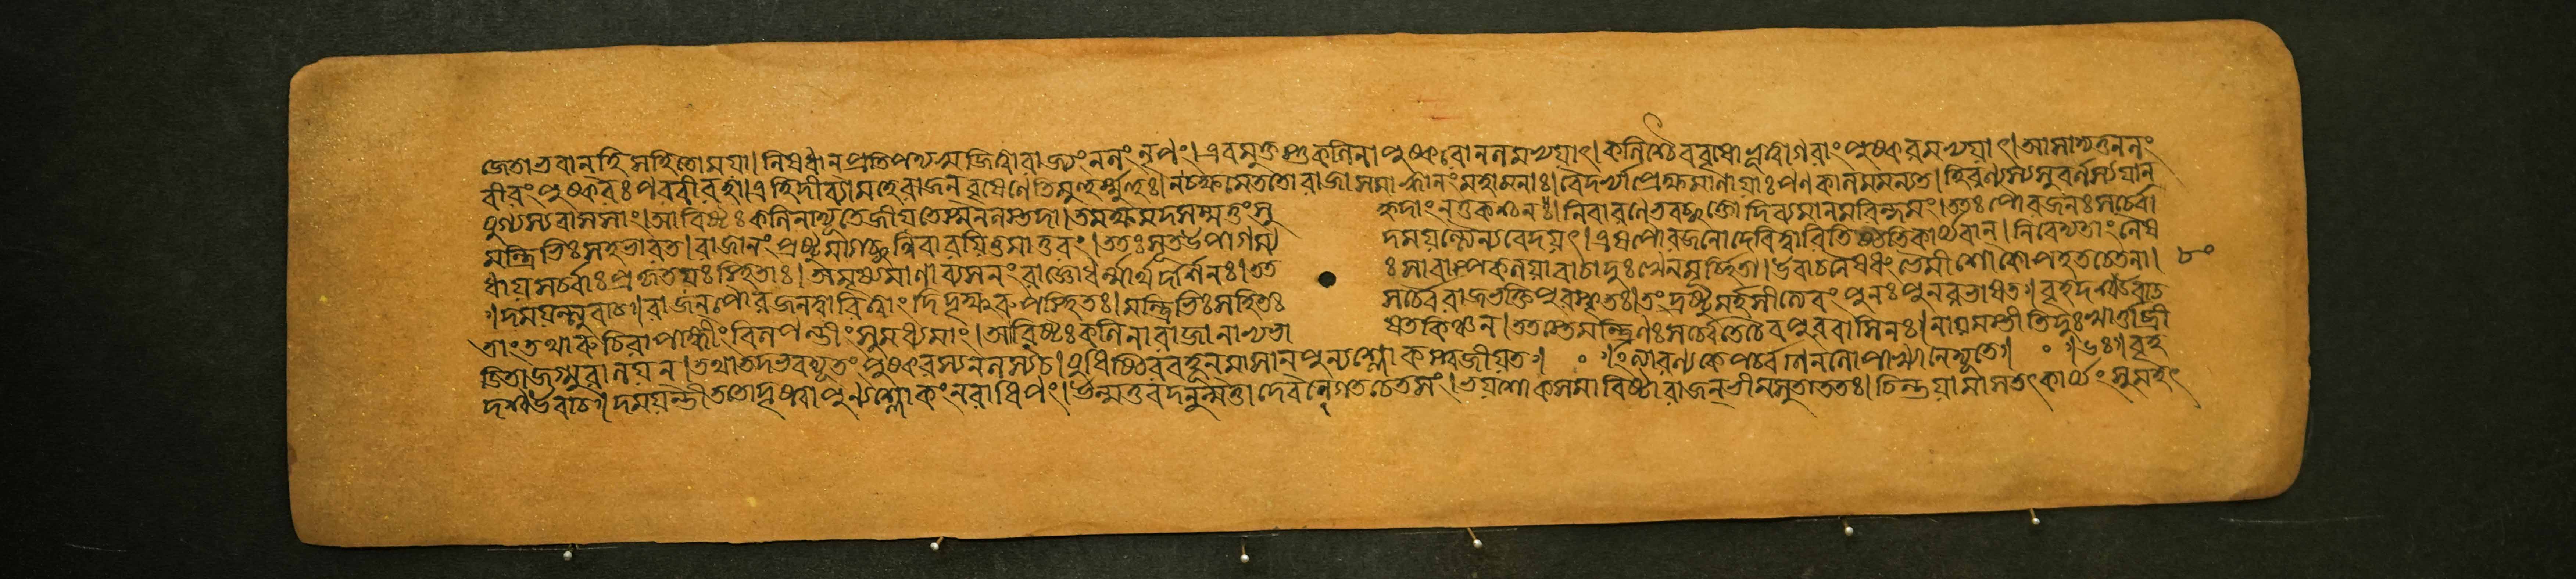 জেতা ভবান্ হি সহিতো ময়া। নিষধান্ প্রতিপদ্যস্ব জিত্বা রাজ্যং নলং নৃপং। এবমুক্তস্তু কলিনা পুষ্করো নলমভ্যয়াৎ। কলিশ্চৈব বৃষো ভূত্বা গবাং পুষ্করমভ্যয়াৎ। আসাদ্য তু নলং
বীরং পুষ্করঃ পরবীরহা। এহি দীব্যামহে রাজন্ বৃষেণেতি মুহুর্ম্মুহুঃ। ন চক্ষমে ততো রাজা সমাহ্বানং মহামনাঃ। বৈদর্ভ্যা প্রেক্ষমাণায়াঃ পণকালমমন্যত। হিরণ্যস্য সুবর্ণস্য যান
যুগ্যস্য বাসসাং। আবিষ্টঃ কলিনা দ্যূতে জীয়তে স্ম নলস্তদা। তমক্ষমদসম্মত্তং সু হৃদাং ন তু কশ্চনঃ। নিবারণে ভবচ্ছক্তো দিব্যমানমরিন্দমং। ততঃ পৌরজনঃ সর্ব্বো
মন্ত্রিভিঃ সহ ভারত। রাজানং দ্রষ্টুমাগচ্ছন্নিবারয়িতুমাতুরং। ততঃ সূত উপাগম্য দময়ন্ত্যৈ ন্যবেদয়ৎ। এষ পৌরজনো দেবি দ্বারি তিষ্ঠতি কার্য্যবান্। নিবেদ্যতাং নৈষ
ধায় সর্ব্বাঃ প্রকৃতয়ঃ স্থিতাঃ। অমৃষ্যমাণা ব্যসনং রাজ্ঞো ধর্ম্মার্থদর্শিনঃ। তত ঃ সা বাষ্পকলয়া বাচা দুঃখেন মূর্চ্ছিতা। উবাচ নৈষধং ভৈমী শোকোপহতচেতনা। ৮০
। দময়ন্ত্যুবাচ। রাজন্ পৌরজনদ্বারি ত্বাং দিদৃক্ষুরুপস্থিতঃ। মন্ত্রিভিঃ সহিতঃ সর্ব্বৈ রাজভক্তিপুরস্কৃতঃ। তং দ্রষ্টুমর্হসীত্যেবং পুনঃ পুনরভাষত। বৃহদশ্ব উবাচ
তাং তথা রুচিরাপাঙ্গীং বিলপন্তীং সুমধ্যমাং। আবিষ্টঃ কলিনা রাজা নাভ্যভা ষত কিঞ্চন। ততস্তে মন্ত্রিণঃ সর্ব্বে তে চৈব পুরবাসিনঃ। নায়মস্তীতি দুঃখার্ত্তা ব্রী
ডিতা জগ্মুরালয়ান্। তথা তদভবদ্দ্যূতং পুষ্করস্য নলস্য চ। যুধিষ্ঠির বহূন্ মাসান্ পুণ্যশ্লোকস্ত্বজীয়ত। ০ । ইত্যারণ্যকে পর্ব্বণি নলোপাখ্যানে দ্যূতে। ০ । ৬ঃ। বৃহ
দশ্ব উবাচ। দময়ন্তী ততো দৃষ্ট্বা পুণ্যশ্লোকং নরাধিপং। উন্মত্তবদনুন্মত্তা দেবনে গতচেতসং। ভয়শোকসমাবিষ্টা রাজন্ ভীমসুতা ততঃ। চিন্তয়ামাস তৎকার্য্যং সুমহৎ